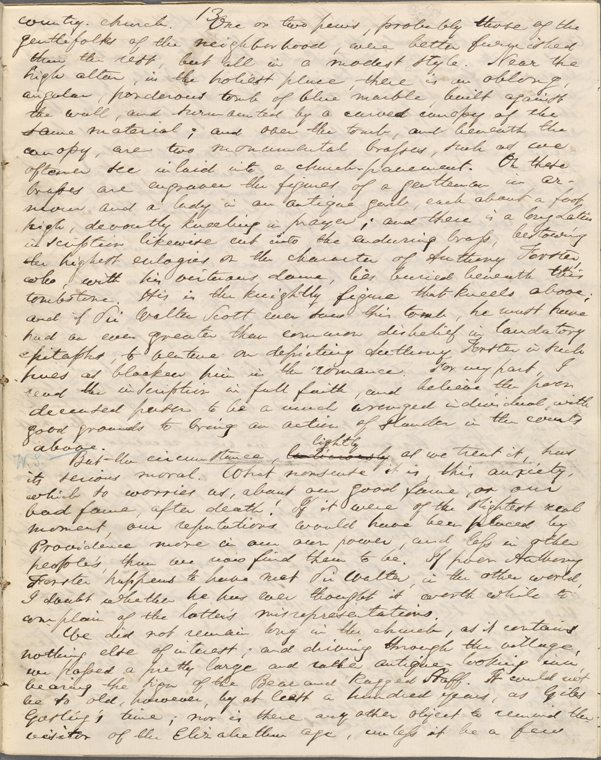 13
country church. One or two pews, probably those of the
gentlefolks of the neighborhood, were better furnished
than the rest, but all in a modest style. Near the
high altar, in the holiest place, there is an oblong,
angular, ponderous tomb of blue marble, built against
the wall, and surmounted by a carved canopy of the
same material; and over the tomb, and beneath the
canopy, are two monumental brasses, such as we
oftener see inlaid into a church-pavement. On these
brasses are engraven the figures of a gentleman in ar-
mour and a lady in an antique garb, each about a foot
high, devoutly kneeling in prayer; and there is a long Latin
inscription likewise cut into the enduring brass, bestowing
the highest eulogies on the character of Anthony Forster
who, with his virtuous dame, lies buried beneath this
tombstone. His is the knightly figure that kneels above;
and if Sir Walter Scott ever saw this tomb, he must have
had an even greater than common disbelief in laudatory
epitaphs, to venture on depicting Anthony Forster in such
hues as blacken him in the romance. For my part, I
read the inscription in full faith, and believe the poor
deceased person to be a much wronged individual, with
good grounds to bring an action of slander in the courts
above.
lightly
But the circumstance, as we treat it, has
its serious moral. What nonsense it is, this anxiety,
which so worries us, about our good fame, or our
bad fame, after death! If it were of the slightest real
moment, our reputations would have been placed by
Providence more in our own power, and less in other
people's, than we now find them to be. If poor Anthony
Forster happens to have met Sir Walter, in the other world,
I doubt whether he has ever thought it worth while to
complain of the latter's misrepresentations.
We did not remain long in the church, as it contains
nothing else of interest; and driving through the village,
we passed a pretty large and rather antique-looking inn,
bearing the sign of the Bear and Ragged Staff. It could not
be so old, however, by at least a hundred years, as Giles
Gosling's time; nor is there any other object to remind the
visitor of the Elizabethan age, unless it be a few